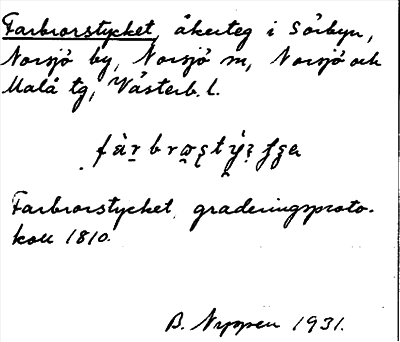 Farbrorstycket, åkerteg i Sörbyn,
Norsjö by, Norsjö sn, Norsjö och
Malå tg, Västerb. l.
Farbrorstycket, graderingsproto-
koll 1810.
B. Nyppen 1931.